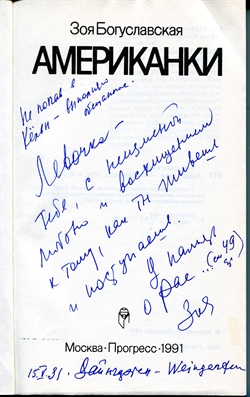 Зоя Богуславская
АМЕРИКАНКИ
Не попав в
Кёльн – выполняю
обещанное.
Левочка –
Тебе, с неизменной
любовью и восхищением
к тому, как ты живешь
и поступаешь.
У памяти
о Рае...
Зоя
Москва · Прогресс · 1991
15.X.91. Вайнгартен – Weingarten